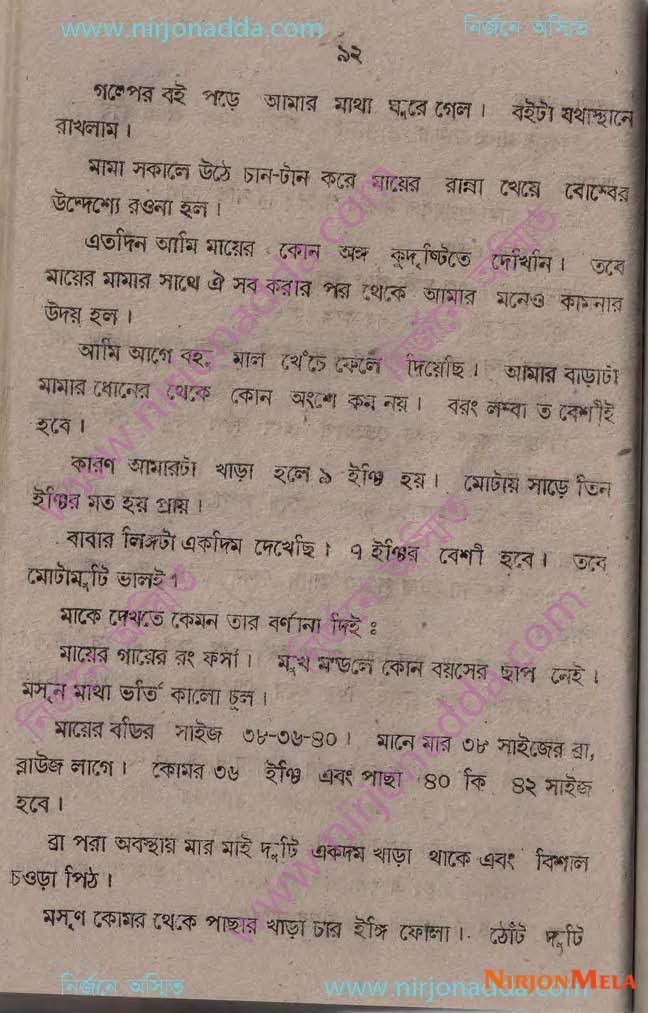 www.nirjonadda.com নির্জনে অস্যিত
৯২
গল্পের বই পড়ে আমার মাথা ঘুরে গেল। বইটা যথাস্থানে
রাখলাম।
মামা সকালে উঠে চান-টান করে মায়ের রান্না খেয়ে বোম্বের
উদ্দেশ্যে রওনা হল।
এতদিন আমি মায়ের কোন অঙ্গ কুদৃষ্টিতে দেখিনি। তবে
মায়ের মামার সাথে ঐ সব করার পর থেকে আমার মনেও কামনার
উদয় হল।
আমি আগে বহু মাল খেঁচে ফেলে দিয়েছি। আমার বাড়াটা
মামার ধোনের থেকে কোন অংশে কম নয়। বরং লম্বা ত বেশীই
হবে।
কারণ আমারটা খাড়া হলে ৯ ইঞ্চি হয়। মোটায় সাড়ে তিন
ইঞ্চির মত হয় প্রায়।
বাবার লিঙ্গটা একদিম দেখেছি। ৭ ইঞ্চির বেশী হবে। তবে
মোটামুটি ভালই।
মাকে দেখতে কেমন তার বর্ণানা দিই :
মায়ের গায়ের রং ফর্সা। মুখ মন্ডলে কোন বয়সের ছাপ নেই।
মসৃন মাথা ভর্তি কালো চুল।
মায়ের বডির সাইজ ৩৮-৩৬-৪০। মানে মার ৩৮ সাইজের ব্রা,
ব্লাউজ লাগে। কোমর ৩৬ ইঞ্চি এবং পাছা ৪০ কি ৪২ সাইজ
হবে।
ব্রা পরা অবস্থায় মার মাই দুটি একদম খাড়া থাকে এবং বিশাল
চওড়া পিঠ।
মসৃণ কোমর থেকে পাছার খাড়া চার ইঙ্গি ফোলা। ঠোঁট দুটি
নির্জনে অস্যিত www.nirjonadda.com
NIRJONMELA
www.nirjonadda.com নির্জনে অস্যিত
নির্জনে অস্যিত www.nirjonadda.com